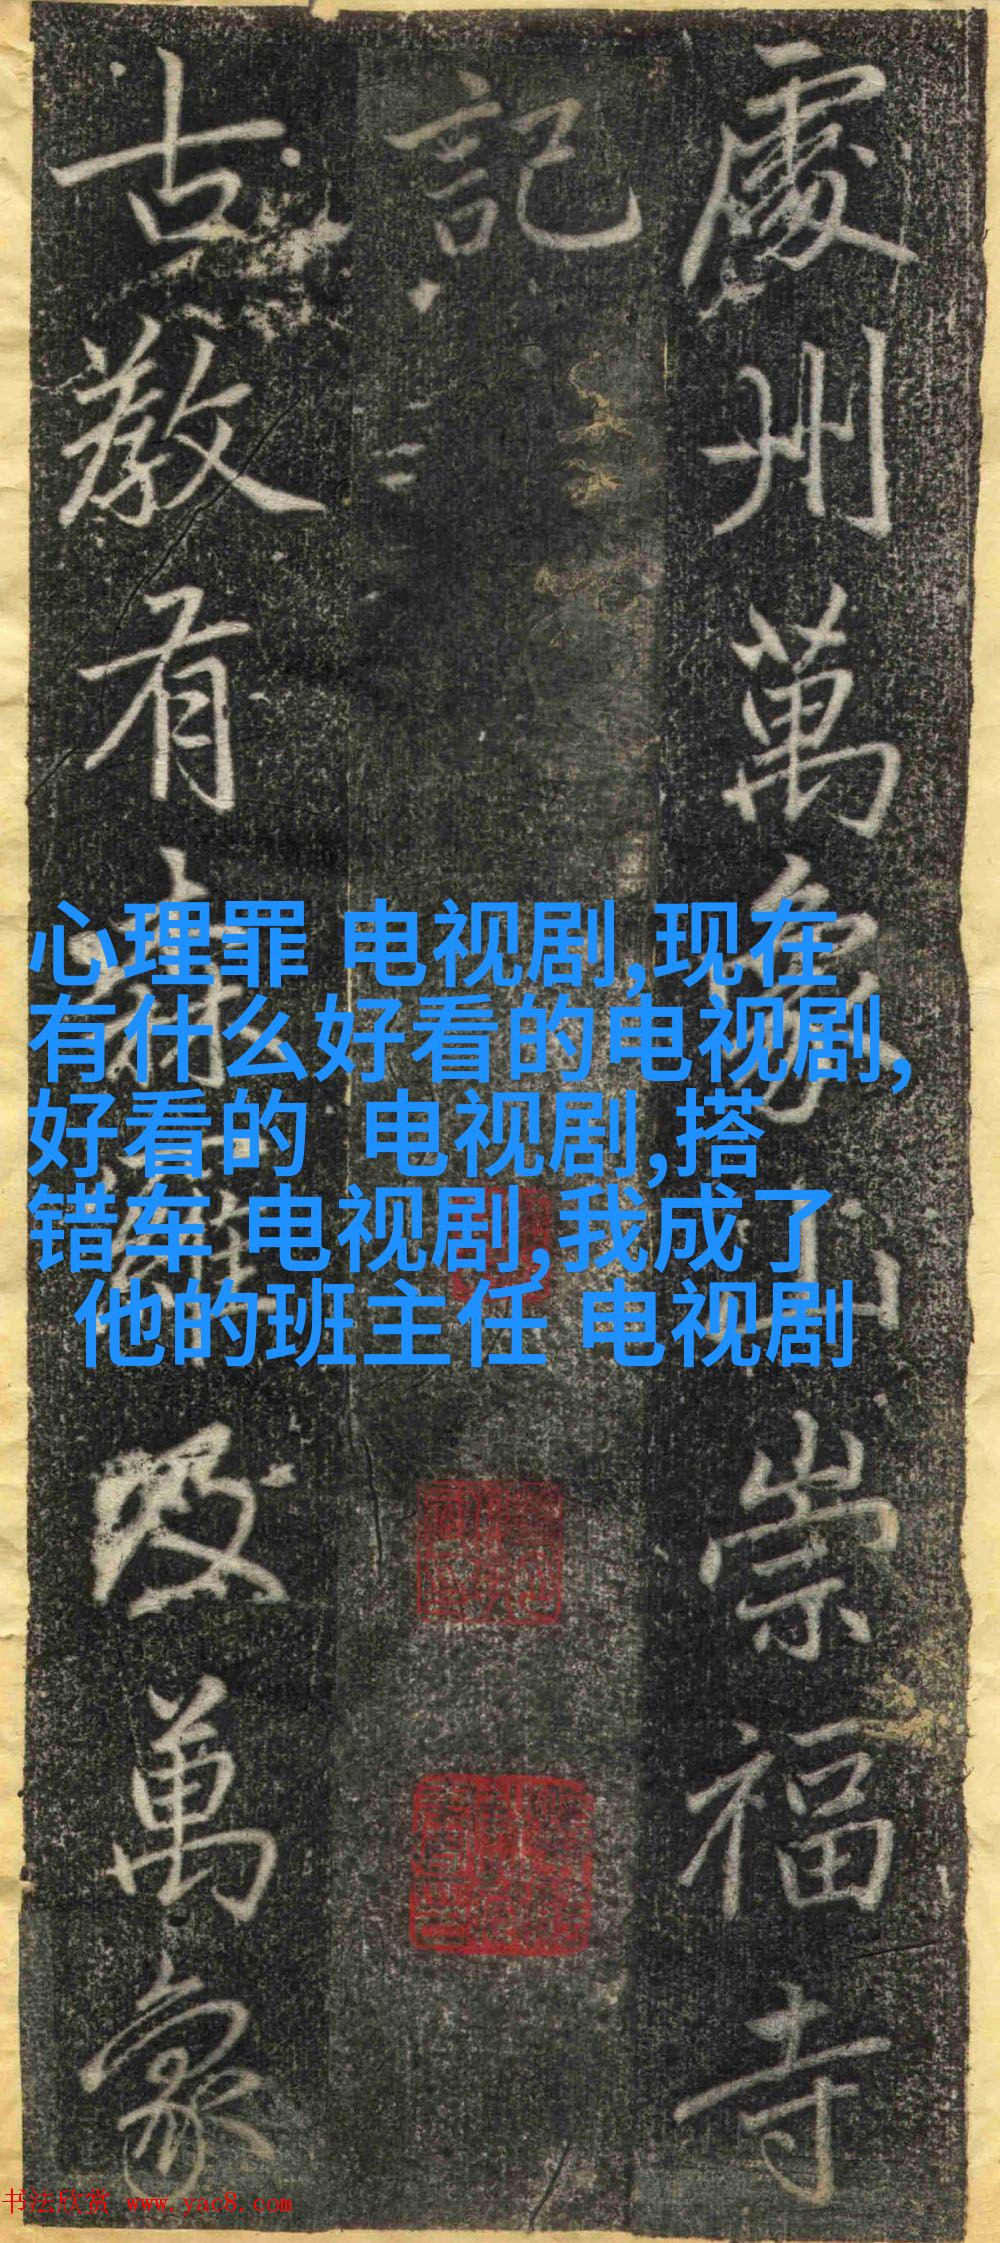 處州萬象山崇福寺
記
古教有羅及萬象
心理罪 电视剧,现在
有什么好看的电视剧,
好看的 电视剧,搭
错车 电视剧,我成了
他的班主任 电视剧
书法欣赏 www.yac8.com